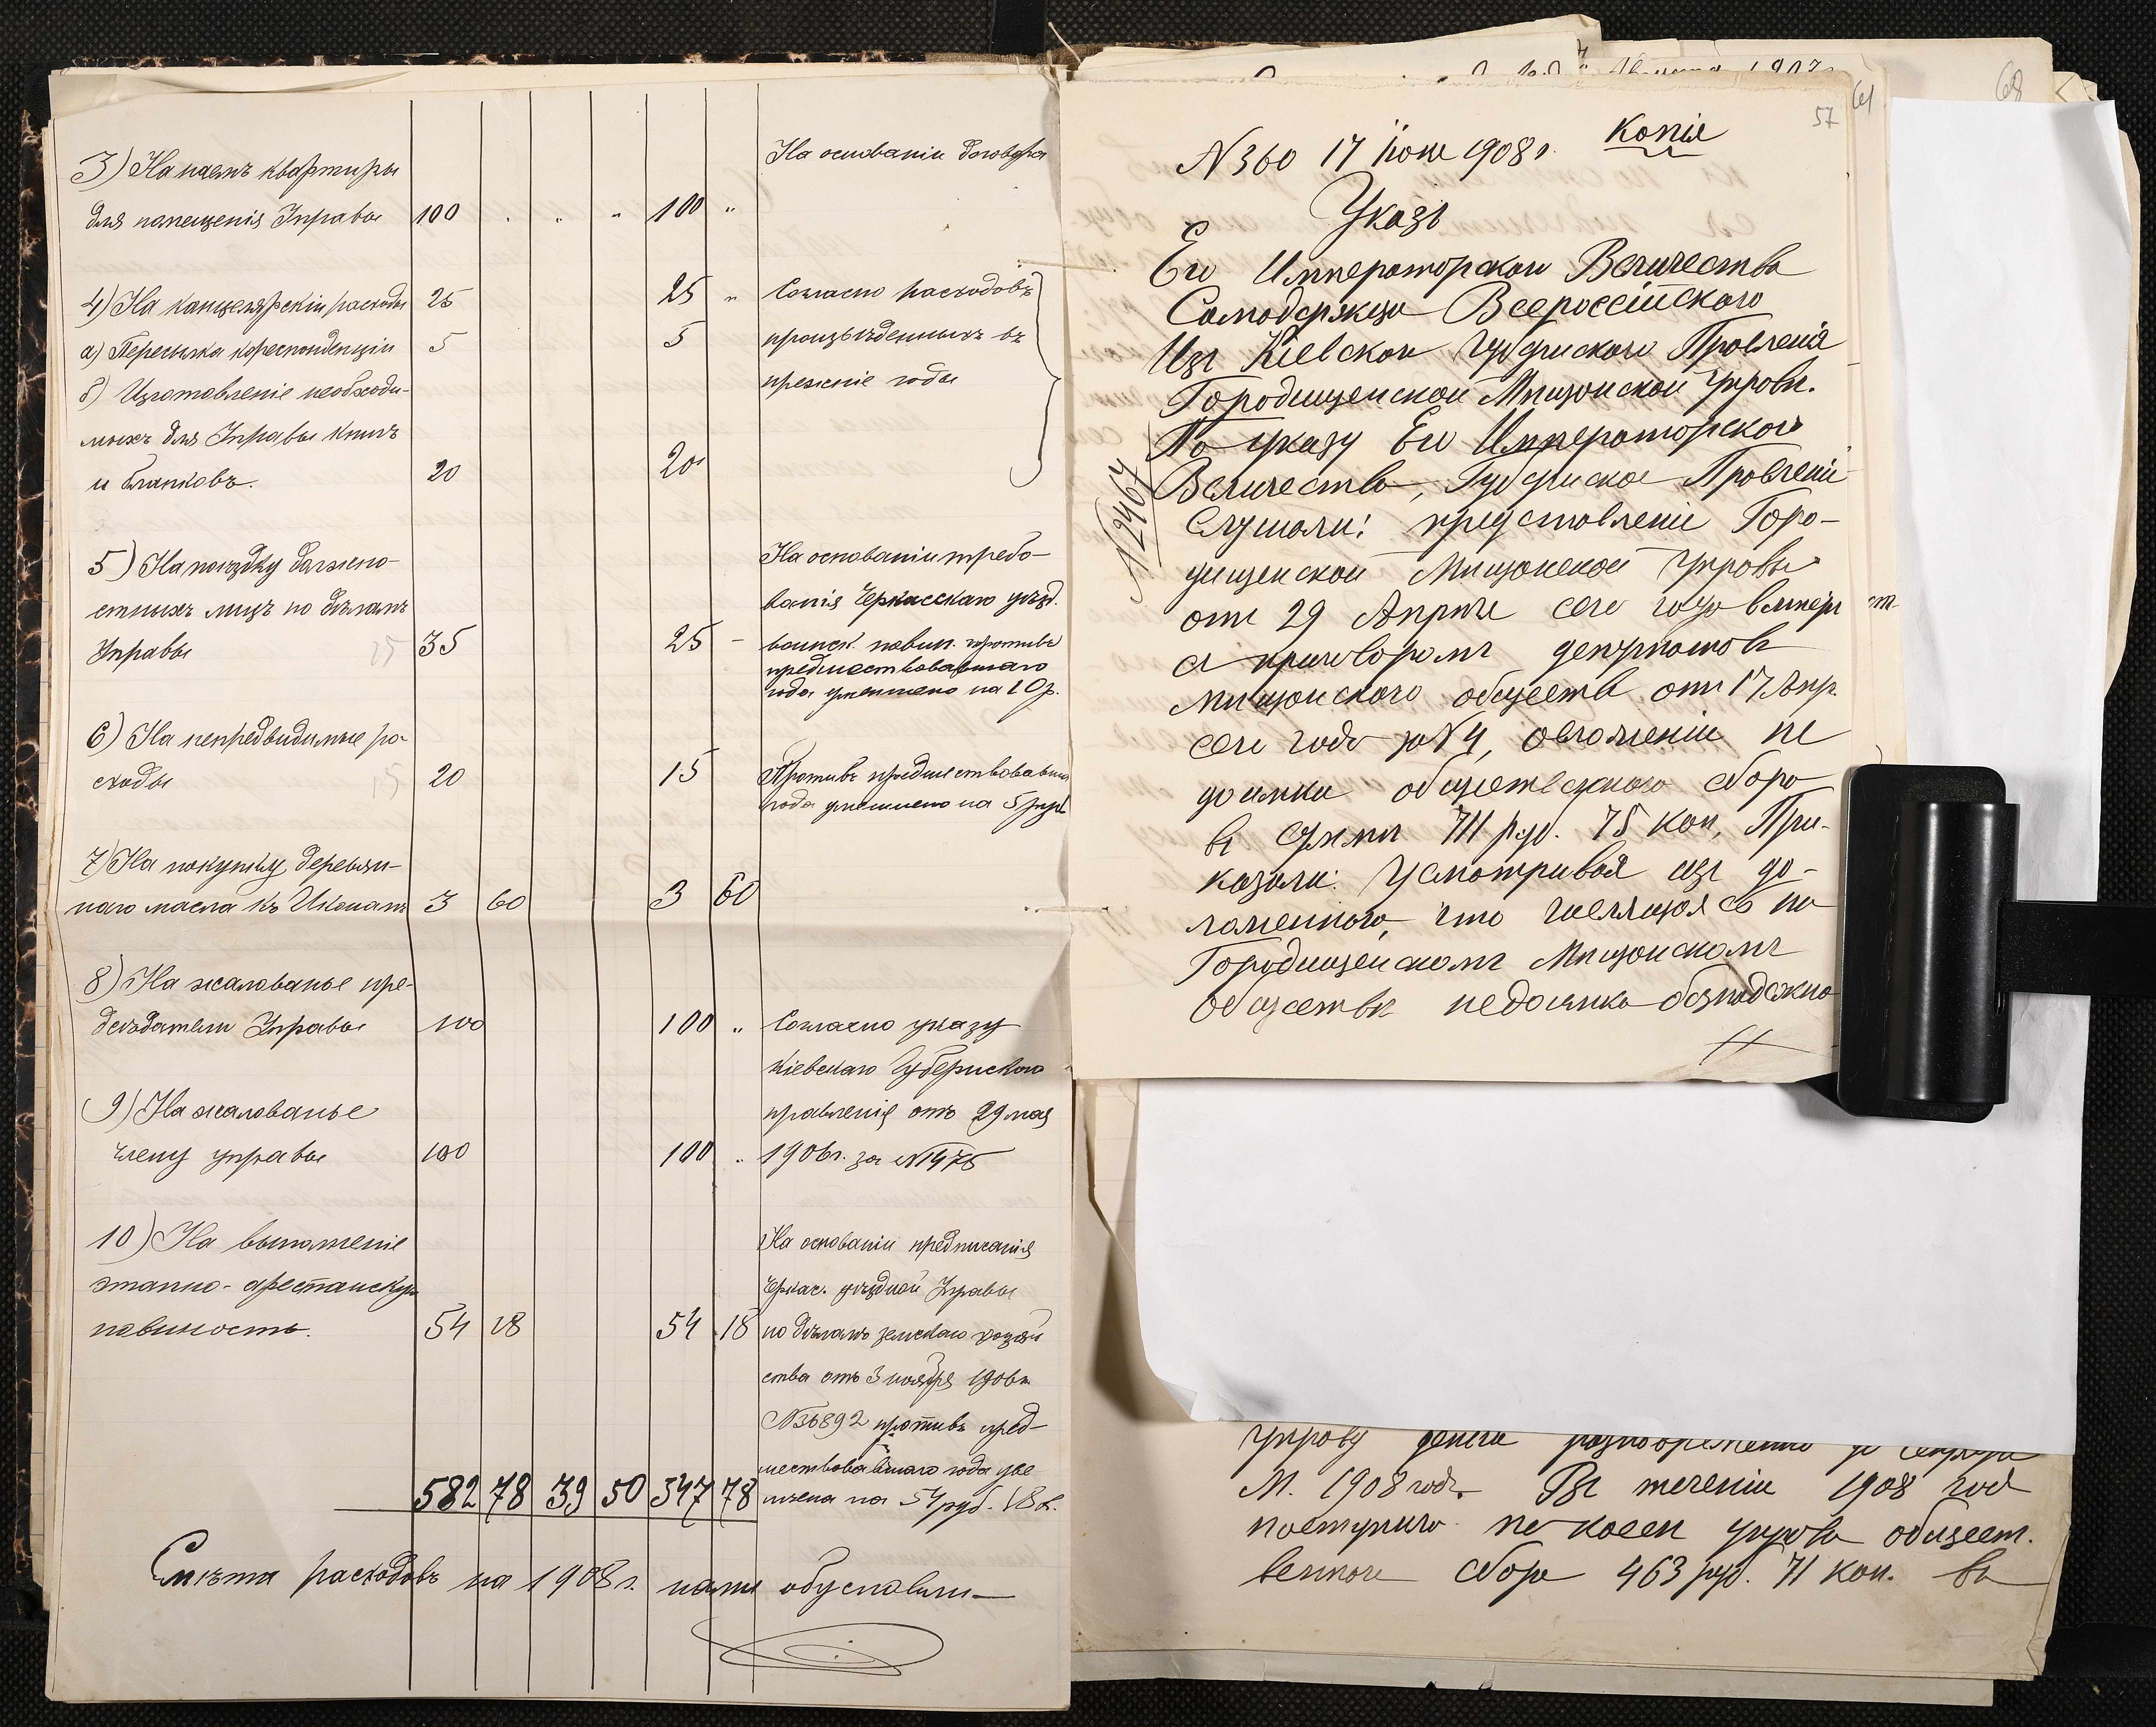 3) На наемъ квартиры
для помещенія Управы 100 " " " 100 "
На основаніи договора
4) На канцелярскіи расходы 25 25 "
а) Пересылка кореспонденціи 5 5
б) Изготовленіе необходи-
мыхъ для Управы книгъ
и бланковъ. 20 20
Согласно расходовъ
произвѣденныхъ въ
прежніе годы
5) На поѣздку должно-
стныхъ лицъ по дѣламъ
Управы 35 25 -
На основаніи требо-
ванія Черкасскаго уѣзд.
воинск. повин. противъ
предшествовавшаго
года уменшено на 10 р.
6) На непредвидимые ра-
сходы 20 15
Противъ предшествовавш
года уменшено на 5 руб
7) На покупку деревян-
наго масла къ Иконамъ 3 60 3 60
8) На жалованье пре-
дсѣдателю Управы 100 100 "
9) На жалованье
члену управы 100 100 "
Согласно указу
Кіевскаго Губернскаго
правленія отъ 29 мая
1906 г. за №1475
10) На выполненіе
этапно-арестанскую
повиность. 54 18 54 18
На основаніи предписанія
Черкас. уѣздной Управы
по дѣламъ земскаго хозяй
ства отъ 3 ноября 1906 г.
№36892 противъ пред-
шествовавшаго года уве
личена на 54 руб. 18 к.
582 78 39 50 547 78
Смѣта расходовъ на 1908 г. нами
57
61
68
Копія
№360 17 Іюня 1908 г.
Указъ
Его Императорскаго Величества
Самодержца Всероссійскаго
Изъ Кіевскаго Губернскаго Правленія
Городищенской Мѣщанской Управѣ.
По указу Его Императорскаго
Величества, Губернское Правленіе
Слушали: представленіе Горо-
дищенской Мѣщанской Управы
отъ 29 Апрѣля сего года
съ приговоромъ депутатовъ
мѣщанскаго обществ. отъ 17 Апр.
сего года за №4, о сложеніи не
доимки общественнаго сбора
въ суммѣ 711 руб. 75 коп, При-
казали: Усматривая изъ до-
ложеннаго, что числящаяся на
Городищенскомъ Мѣщанскомъ
обществѣ недоимка безнадежна
№ 2467
Управу деньги разновременно до
М. 1908 года. Въ теченіи 1908 год
поступило по всей управѣ общест.
веннаго сбора 463 руб. 71 коп. въ